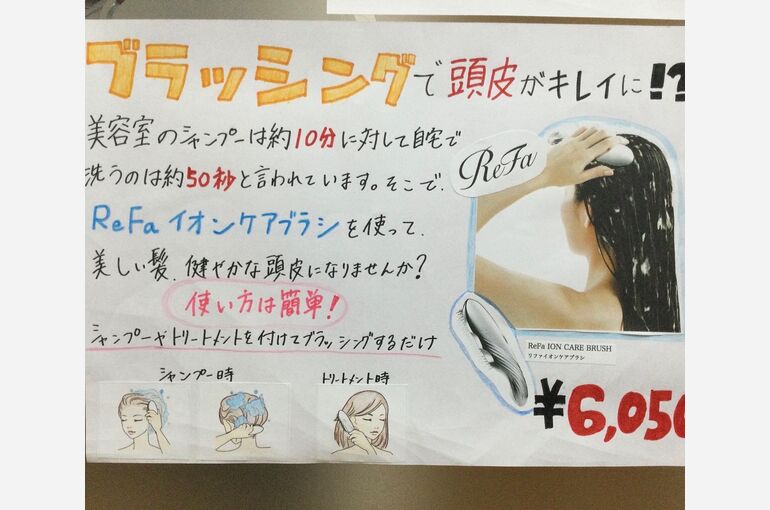 ブラッシングで頭皮がキレイに!?
美容室のシャンプーは約10分に対して自宅で
洗うのは約50秒と言われています。そこで、
ReFaイオンケアブラシを使って、
美しい髪、健やかな頭皮になりませんか?
使い方は簡単!
シャンプーやトリートメントを付けてブラッシングするだけ
シャンプー時
トリートメント時
ReFa
ReFa ION CARE BRUSH
リファイオンケアブラシ
¥6,050